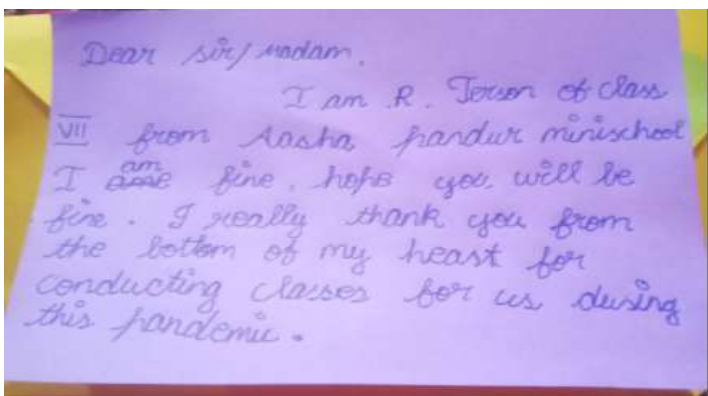 Dear sir/madam.
I am R. Jerson of class
VII from Aasha pandur minischool
I am fine. hope you will be
fine. I really thank you from
the bottom of my heart for
conducting classes for us during
this pandemic.